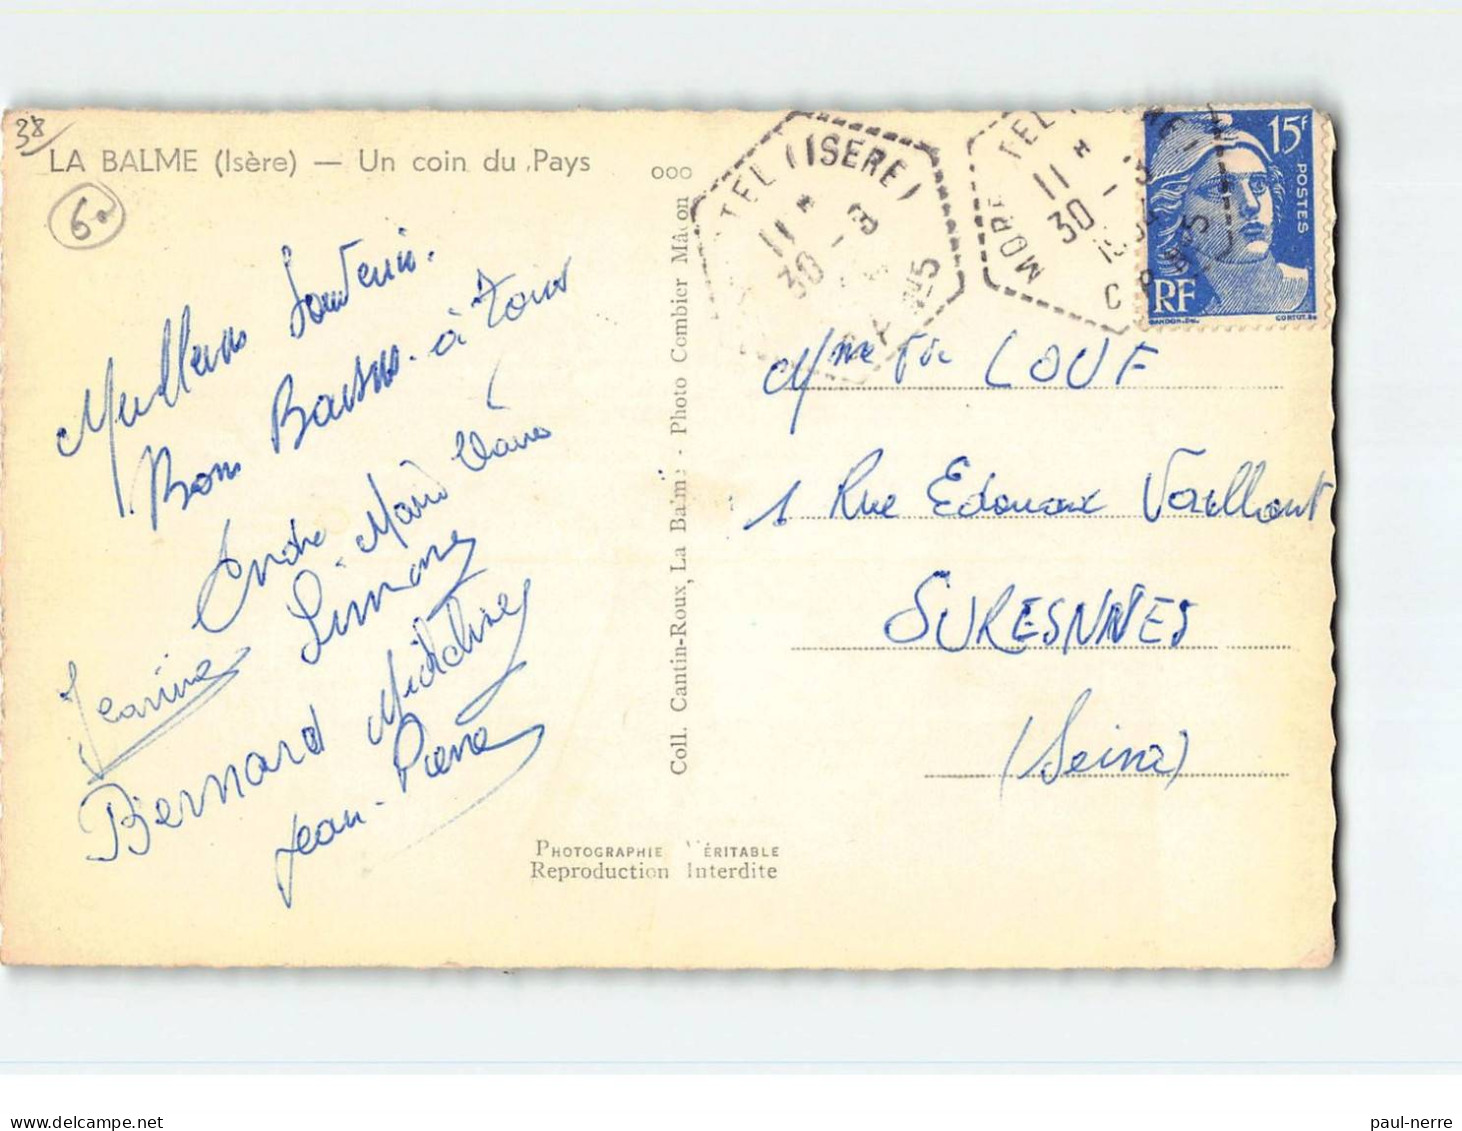 38
LA BALME (Isère) — Un coin du Pays
ooo
60
Meilleurs Souvenir.
Bons Baisers à tous
André Marie Claire
Simone
Jeanine
Bernard Micheline
Jean-Pierre
Coll. Cantin-Roux, La Balme - Photo Combier Mâcon
PHOTOGRAPHIE VÉRITABLE
Reproduction Interdite
TEL (ISERE)
11 *
30 - 8
N°5
MORE TEL
11 *
30 -
C P N°5
15F
POSTES
RF
GANDON
CORTOT
Mme Vve LOUF
1 Rue Edouard Vaillant
SURESNNES
(Seine)
paul-nerre